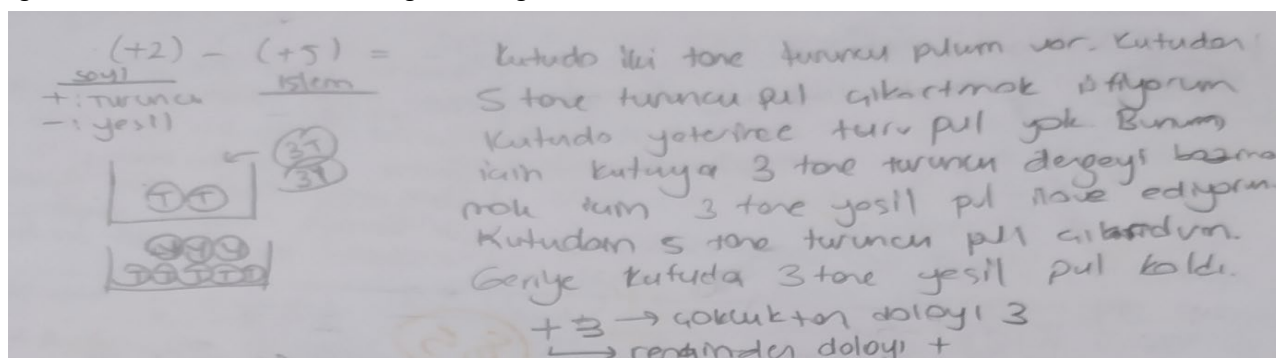 (+2) - (+5) =
sayı işlem
+ : Turuncu
- : yeşil
3T
3Y
T T
Y Y Y
T T T T T
Kutuda iki tane turuncu pulum var. Kutudan
5 tane turuncu pul çıkartmak istiyorum
Kutuda yeterince turu pul yok Bunun
için kutuya 3 tane turuncu dengeyi bozma
mak için 3 tane yeşil pul ilave ediyorum
Kutudan 5 tane turuncu pul çıkardım.
Geriye kutuda 3 tane yeşil pul kaldı.
+3 → çokluktan dolayı 3
→ renginden dolayı +